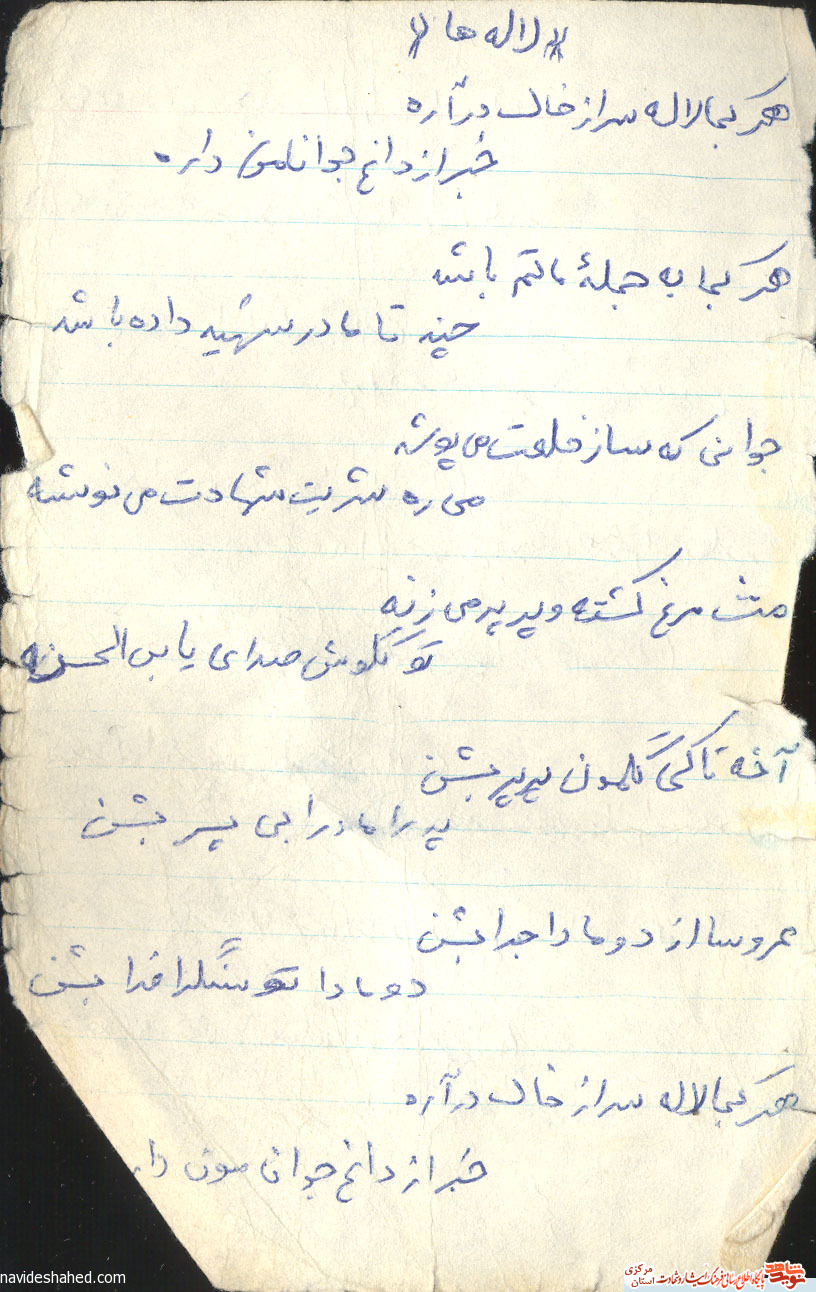 «لاله ها»
هر کجا لاله سر از خاک درآره
خبر از داغ جوانامون داره
هر کجا به حجلهٔ ماتم باشه
حیف تا مادر شهید داده باشد
جوانی که ساز خلعت می پوشه
می ره شربت شهادت می نوشه
مث مرغ کشته و پر پر می زنه
تو گوش صدای یابن الحسنه
آخه تا کی گلمون پرپر بشن
پدرا مادرا بی پسر بشن
عروسا از دوما دا جدا بشن
دومادا تو سنگرا فدا بشن
هر کجا لاله سر از خاک درآره
خبر از داغ جوانا مون دار
navideshahed.com
نوید شاهد
پایگاه اطلاع رسانی فرهنگ ایثار و شهادت
استان مرکزی